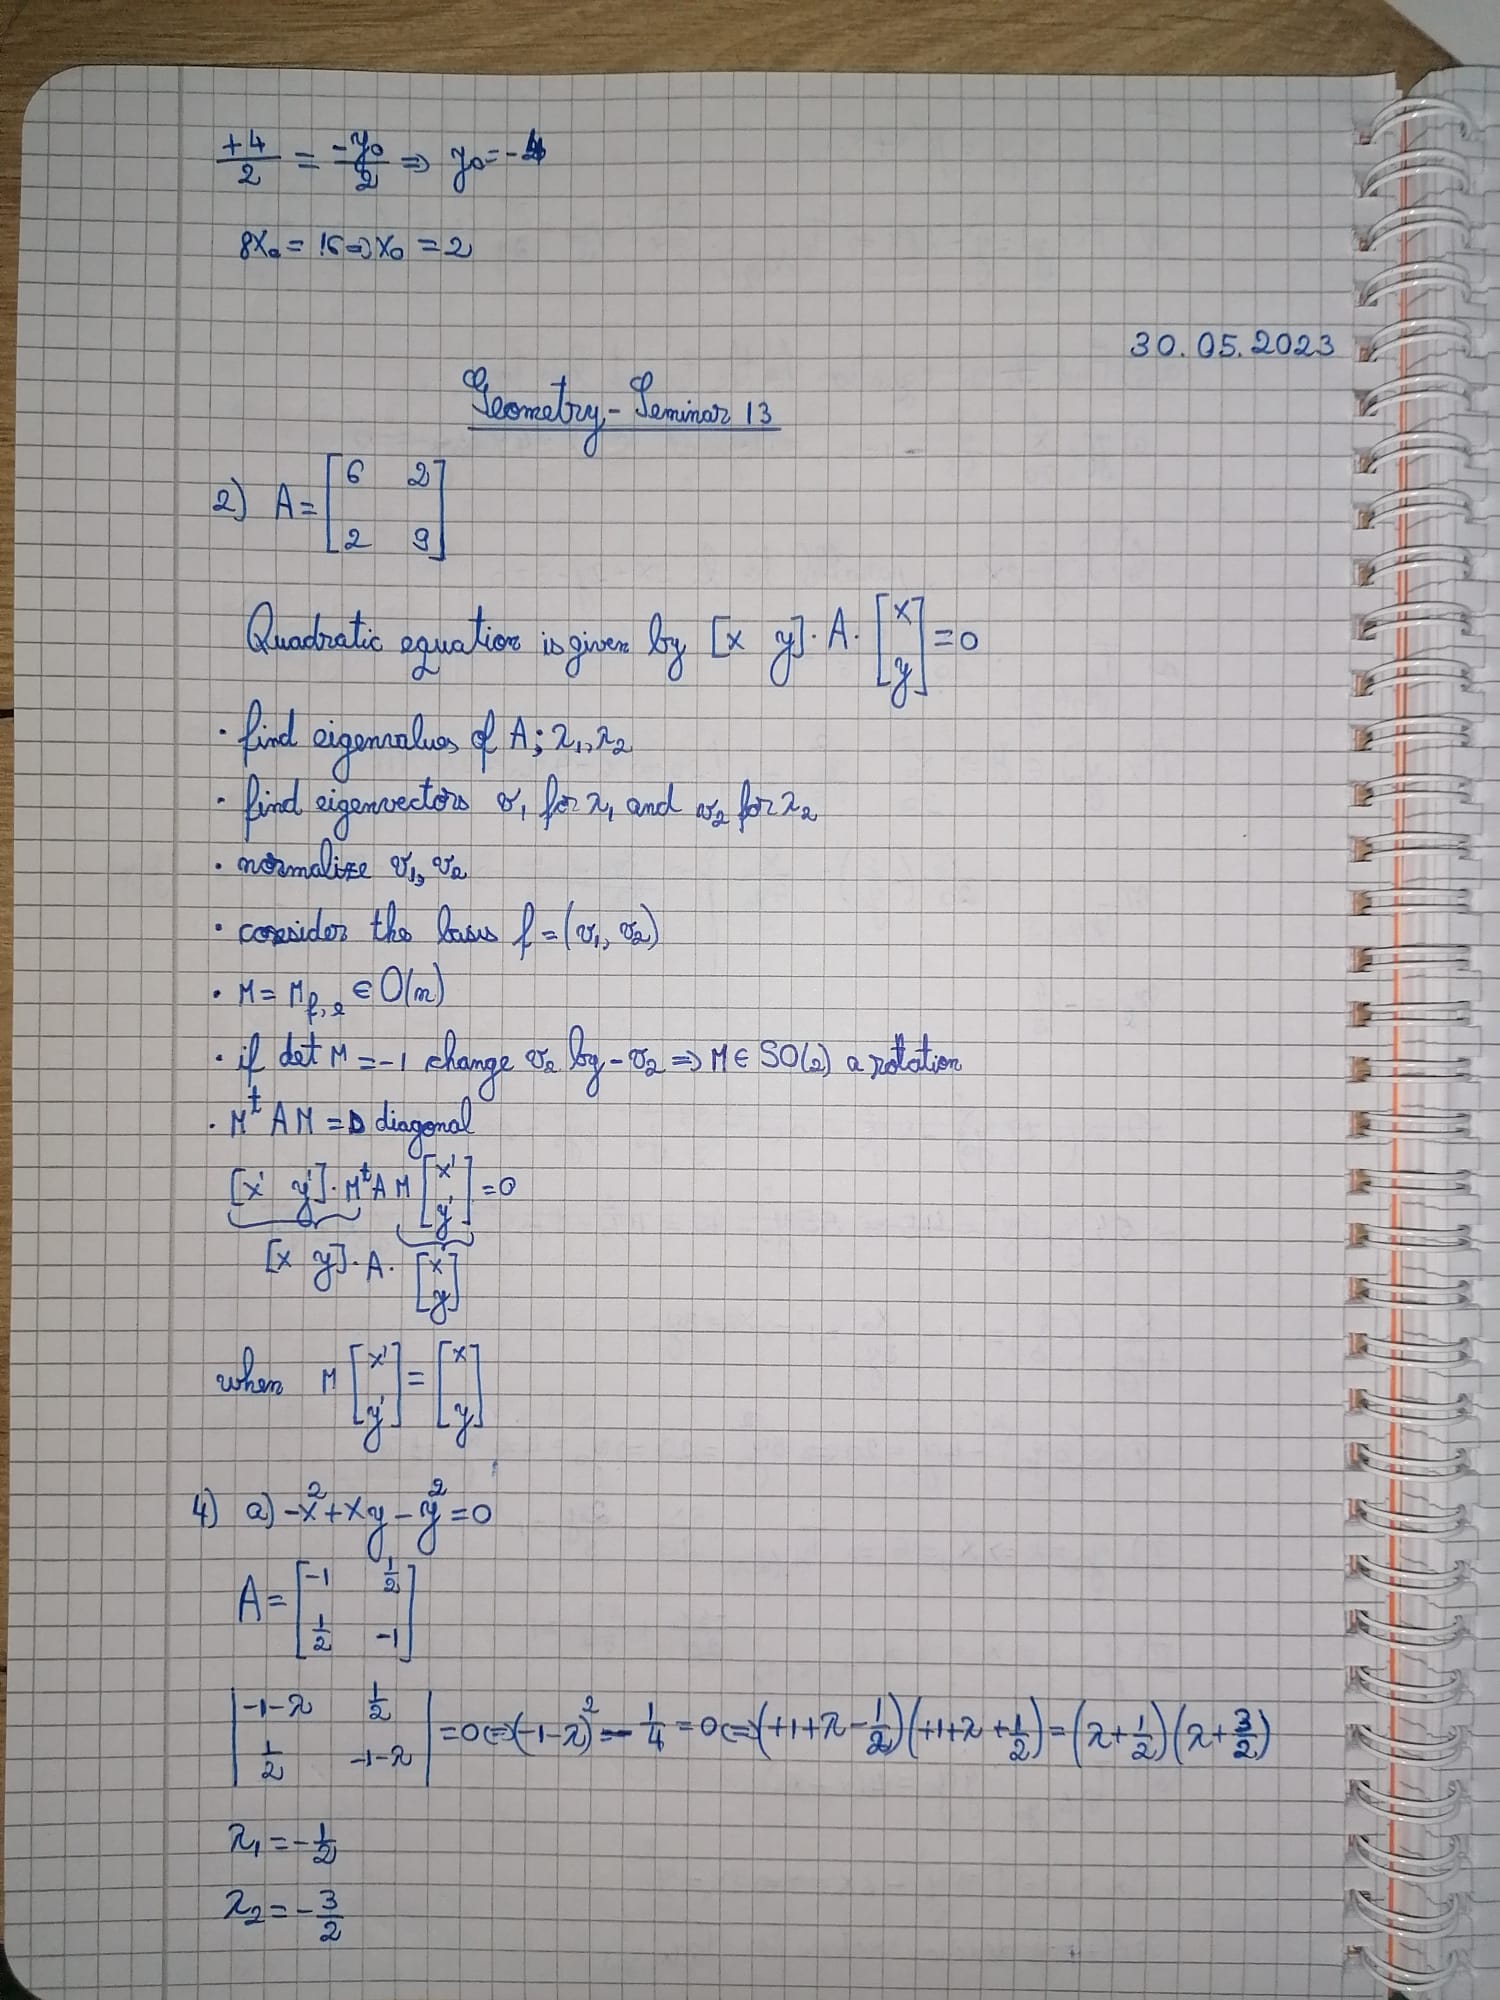 +4/2 = -y₀/2 ⇒ y₀ = -4
8x₀ = 16 ⇒ x₀ = 2
30.05.2023
Geometry - Seminar 13
2) A = [6 2; 2 9]
Quadratic equation is given by [x y] · A · [x; y] = 0
· find eigenvalues of A; λ₁, λ₂
· find eigenvectors v₁ for λ₁ and v₂ for λ₂
· normalize v₁, v₂
· consider the basis f = (v₁, v₂)
· M = M_f,e ∈ O(n)
· if det M = -1 change v₂ by -v₂ ⇒ M ∈ SO(2) a rotation
· Mᵗ A M = D diagonal
[x' y'] · Mᵗ A M [x'; y'] = 0
[x y] · A · [x; y]
when M [x'; y'] = [x; y]
4) a) -x² + xy - y² = 0
A = [-1 1/2; 1/2 -1]
|-1-λ 1/2; 1/2 -1-λ| = 0 ⇔ (-1-λ)² - 1/4 = 0 ⇔ (+1+λ-1/2)(+1+λ+1/2) = (λ+1/2)(λ+3/2)
λ₁ = -1/2
λ₂ = -3/2